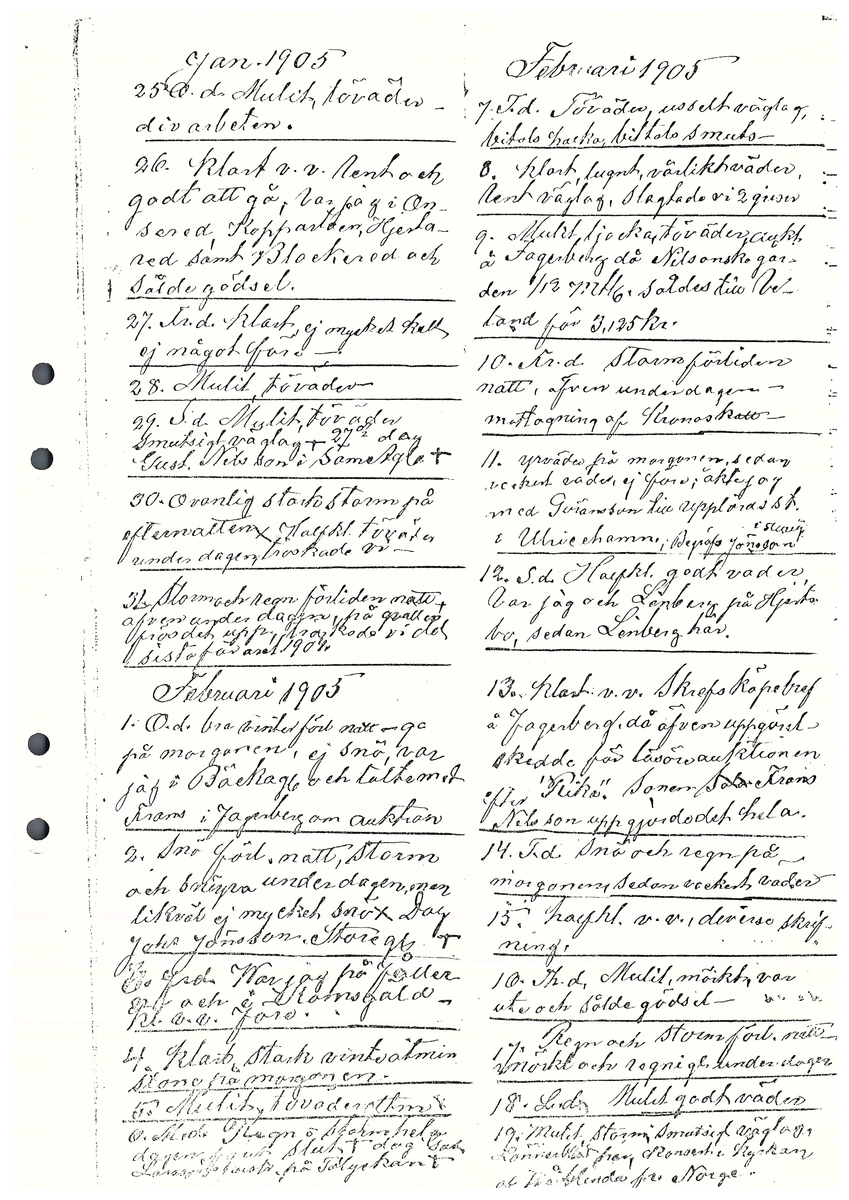 Jan. 1905
25 O.d. Mulit, töväder -
div arbeten.
26. Klart v.v. lent och
godt att gå, var jag i On-
sered Kopparlöen, Hjerta-
red samt Blackered och
sålde gödsel.
27. Fr.d. Klart, ej mycket kallt
ej något före —
28. Mulit, töväder
29. S.d. Mulit, töväder
smutsigt väglag + 27de dog
Gust. Nilsson i Säme +
30. Ovanlig stark storm på
efternatten x Halfkl. töväder
under dagen, tröskade vi —
31. Storm och regn förliden natt,
äfven under dagen, på qvällen
frös det upp, tröskade vi det
sista för året 1904.
Februari 1905
1. O.d. bra vinter förl natt - ga
på morgonen, ej snö, var
jag i Bäckagl. och talte med
Frans i Fagerberg om auktion
2. Snö förl. natt, storm
och snöyra under dagen, men
likväl ej mycket snö x Dog
Johs Jönsson. Storegl. +
3. Frd. War jag på
och i Komsgäld -
Kl. v.v. före.
4. Klart, stark vint
stone på morgonen.
5. Mulit, töväder
6. M.d. Regn o storm hela
dagen, slut + dog
på Tälgekan +
Februari 1905
7. T.d. Töväder, usselt väglag,
bitals barka, bittals smuts -
8. Klart, lugnt, vårlikt väder,
lent väglag, slagtade vi 2 grisar
9. Mulit, tjocka, töväder, aukt
å Fagerberg då Nilsonska går-
den 1/12 Mtl. såldes till Ve-
land för 3,125 kr.
10. Fr.d Storm förliden
natt, äfven under dagen -
mottagning af Kronoskatt -
11. yrväder på morgonen, sedan
vackert väder, ej före; åkte jag
med Göransson till upplörds st.
i Ulricehamn, Begrofs Jönsson
12. S.d. Halfkl. godt väder,
var jag och Lenberg på Hjerta
bo, sedan Lenberg här.
13. Klart v.v. Skrefs köpebref
å Fagerberg, då äfven uppgörel-
skedde för lösöreauktionen
efter "Rika". Sonen Frans
Nilsson uppgjorde det hela.
14. T.d. Snö och regn på
morgonen, sedan vackert väder
15. halfkl. v.v., diverse skrif-
ning.
16. Th.d. Mulit, mörkt, var
ute och sålde gödsel —
17. Regn och storm förl. natt
mörkt och regnigt under dagen
18. L.d. Mulit godt väder
19. Mulit, storm, smutsigt väglag,
Konsert i Kyrkan
af blinda fr. Norge.